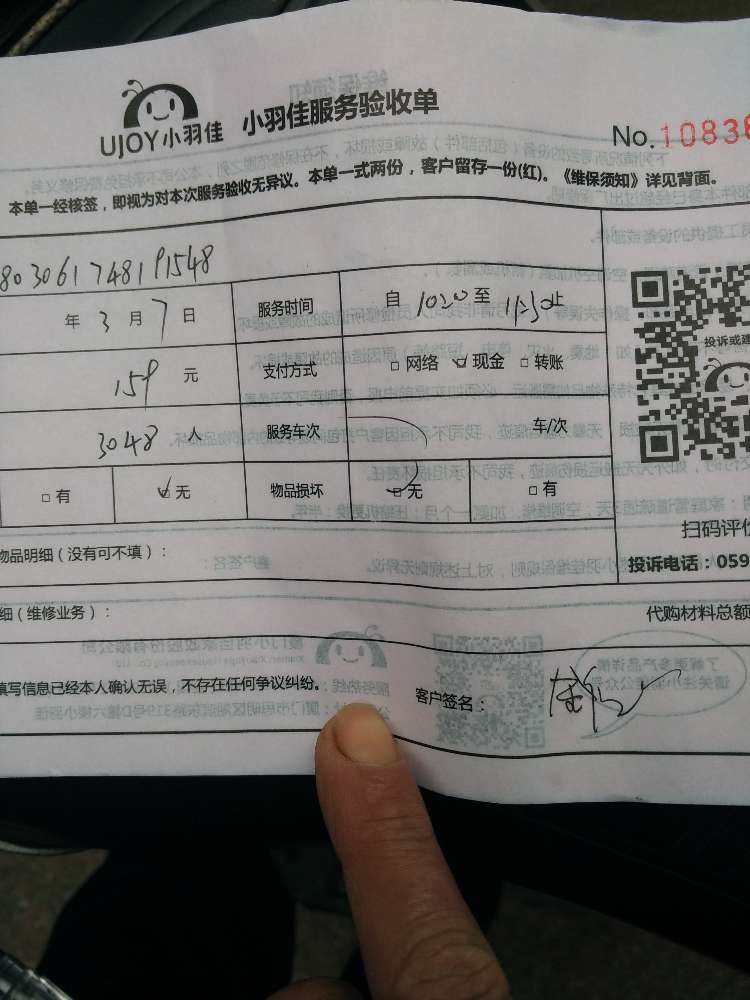 UJOY小羽佳 小羽佳服务验收单
No.10836
本单一经核签，即视为对本次服务验收无异议。本单一式两份，客户留存一份(红)。《维保须知》详见背面。
803061748191548
年 3 月 7 日 服务时间 自 10:20 至 11:30 止
投诉或建
159 元 支付方式 □ 网络 ☑ 现金 □ 转账
3048 人 服务车次 车/次
□ 有 ☑ 无 物品损坏 ☑ 无 □ 有
扫码评价
物品明细（没有可不填）：
投诉电话：059
细（维修业务）：
代购材料总额
填写信息已经本人确认无误，不存在任何争议纠纷。
客户签名：